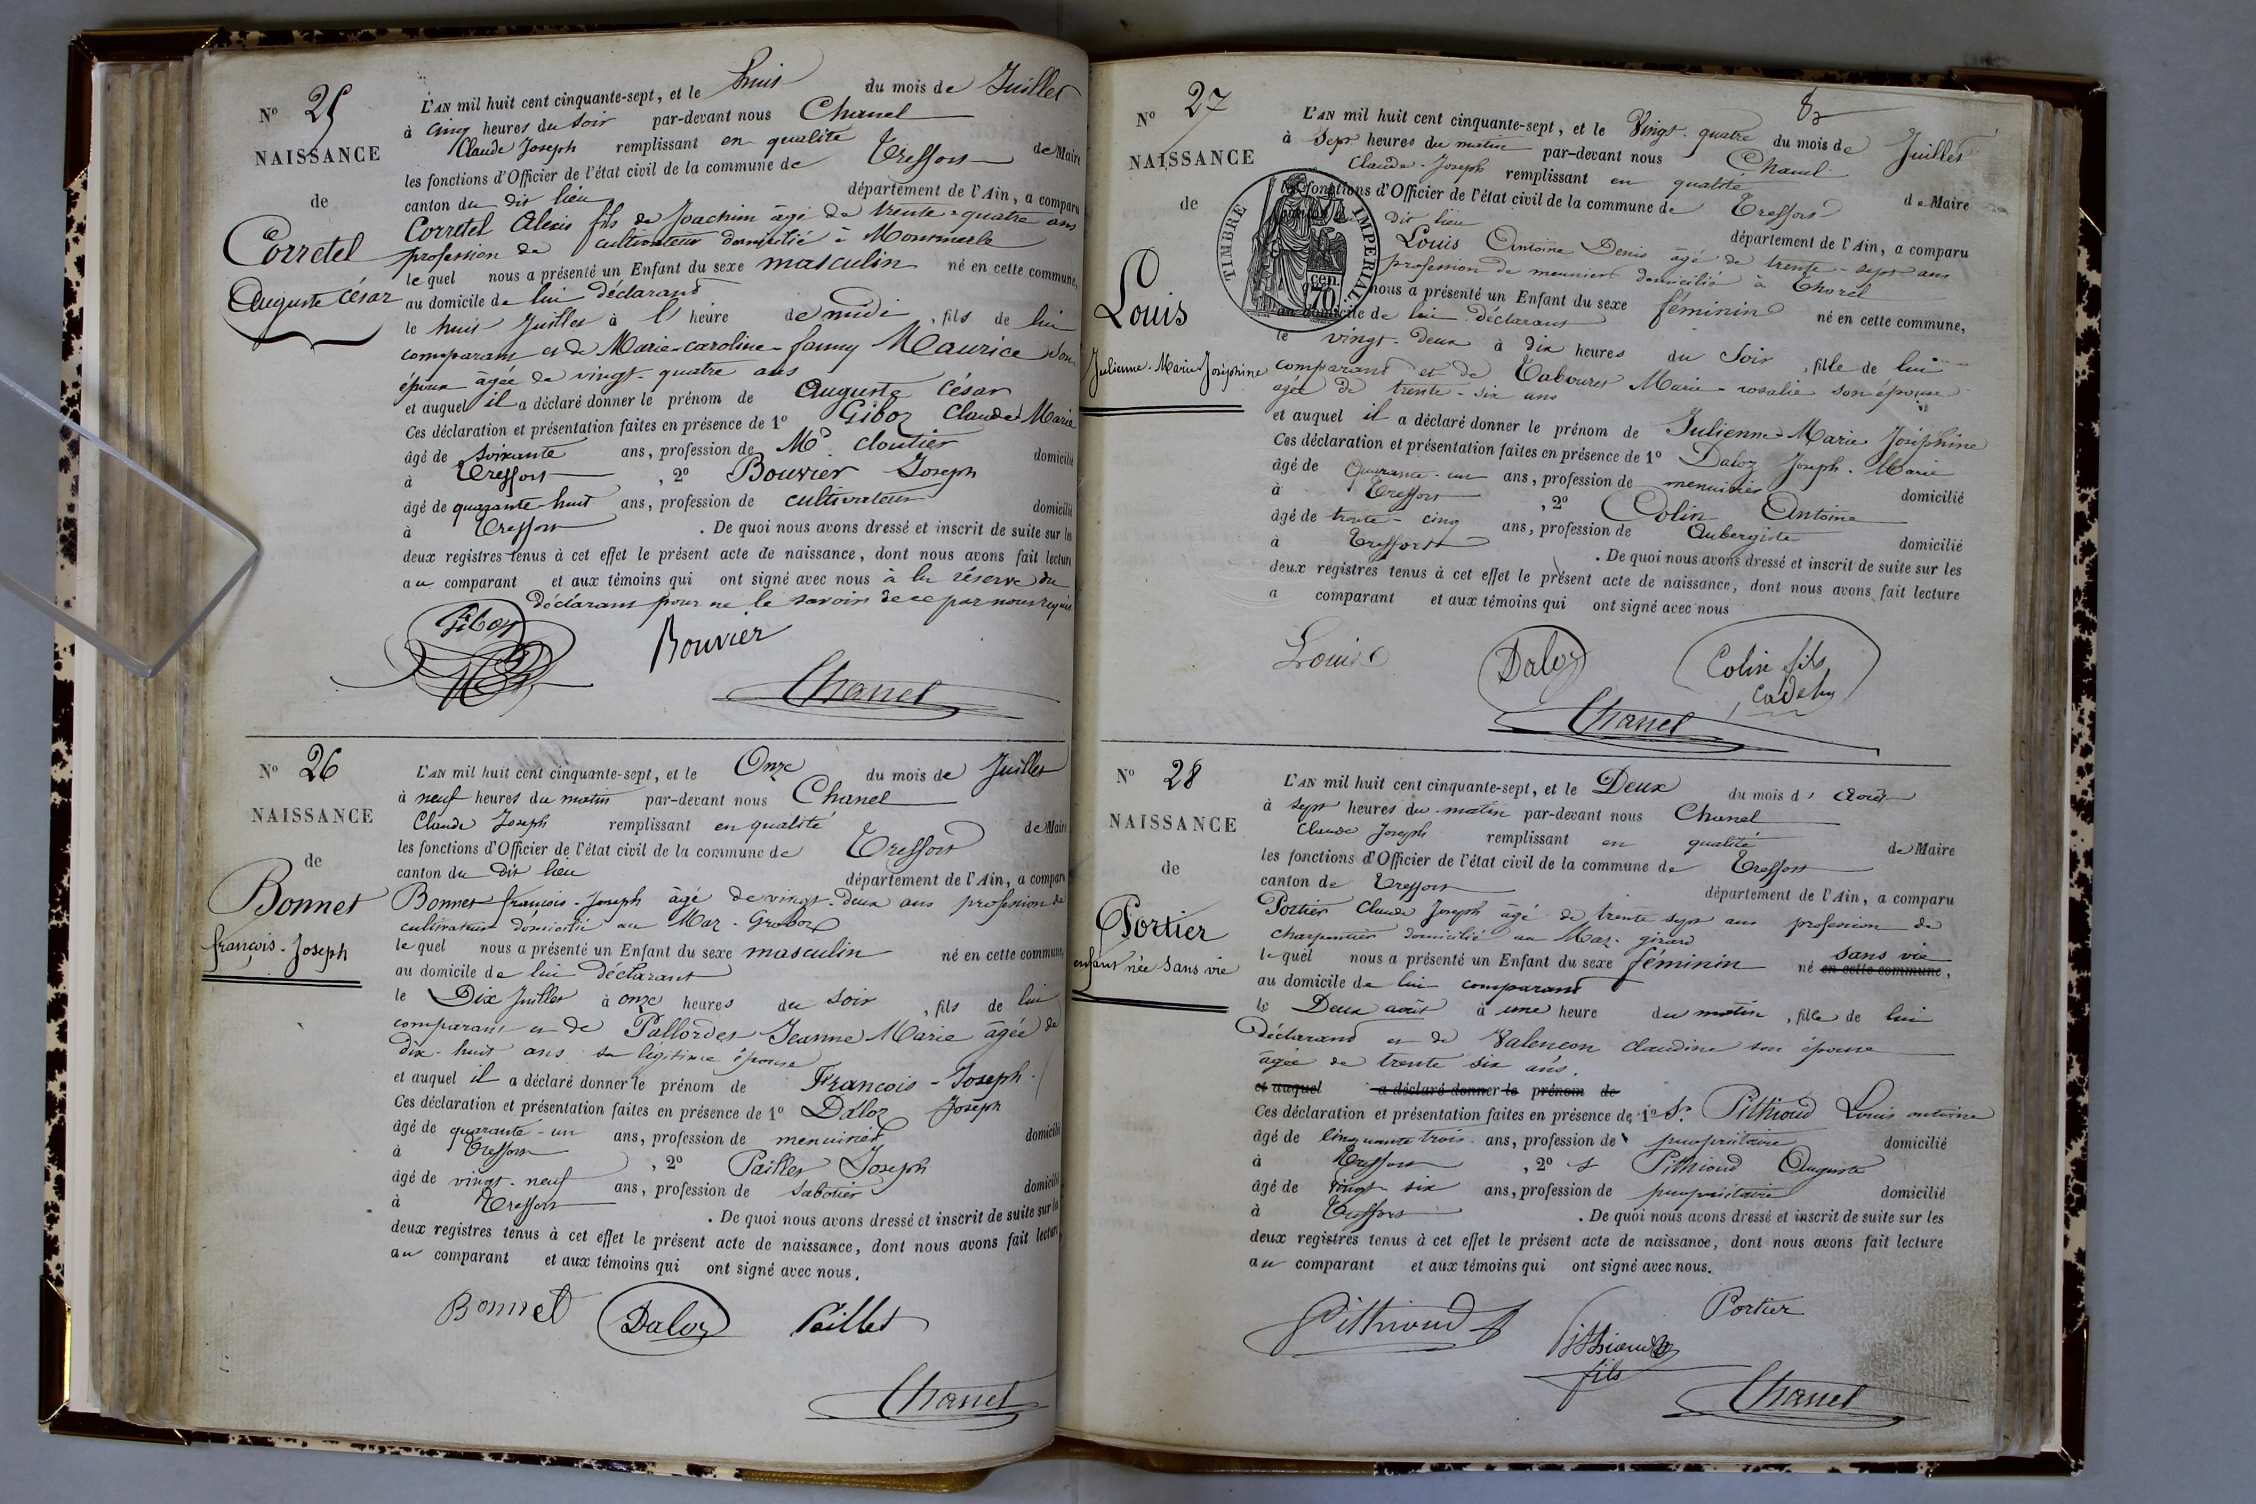 N° 25
NAISSANCE
de
Corretel
Auguste César
L'AN mil huit cent cinquante-sept, et le huit du mois de Juillet
à cinq heures du soir par-devant nous Chanel
Claude Joseph remplissant en qualité de Maire
les fonctions d'Officier de l'état civil de la commune de Treffort
canton du dit lieu département de l'Ain, a comparu
Corretel Alexis fils de Joachim âgé de trente-quatre ans
profession de cultivateur domicilié à Montmerle
lequel nous a présenté un Enfant du sexe masculin né en cette commune,
au domicile de lui déclarant
le huit Juillet à l' heure de midi, fils de lui
comparant et de Marie-caroline-fanny Maurice son
épouse âgée de vingt-quatre ans
et auquel il a déclaré donner le prénom de Auguste César
Ces déclaration et présentation faites en présence de 1° Giboz Claude Marie
âgé de soixante ans, profession de Md cloutier domicilié
à Treffort, 2° Bouvier Joseph
âgé de quarante huit ans, profession de cultivateur domicilié
à Treffort. De quoi nous avons dressé et inscrit de suite sur les
deux registres tenus à cet effet le présent acte de naissance, dont nous avons fait lecture
au comparant et aux témoins qui ont signé avec nous à la réserve du
déclarant pour ne le savoir de ce par nous requis
Giboz
Bouvier
Chanel
N° 26
NAISSANCE
de
Bonnet
françois-Joseph
L'AN mil huit cent cinquante-sept, et le Onze du mois de Juillet
à neuf heures du matin par-devant nous Chanel
Claude Joseph remplissant en qualité de Maire
les fonctions d'Officier de l'état civil de la commune de Treffort
canton du dit lieu département de l'Ain, a comparu
Bonnet françois-Joseph âgé de vingt-deux ans profession de
cultivateur domicilié au Mas-Groboz
lequel nous a présenté un Enfant du sexe masculin né en cette commune,
au domicile de lui déclarant
le Dix Juillet à onze heures du soir, fils de lui
comparant et de Pallordet Jeanne Marie âgée de
dix-huit ans sa légitime épouse
et auquel il a déclaré donner le prénom de François-Joseph
Ces déclaration et présentation faites en présence de 1° Daloz Joseph
âgé de quarante-un ans, profession de menuisier domicilié
à Treffort, 2° Paillet Joseph
âgé de vingt-neuf ans, profession de sabotier domicilié
à Treffort. De quoi nous avons dressé et inscrit de suite sur les
deux registres tenus à cet effet le présent acte de naissance, dont nous avons fait lecture
au comparant et aux témoins qui ont signé avec nous.
Bonnet Daloz Paillet
Chanel
N° 27
NAISSANCE
de
Louis
Julienne-Marie-Joséphine
TIMBRE IMPERIAL
70 cen.
L'AN mil huit cent cinquante-sept, et le Vingt-quatre du mois de Juillet
à Sept heures du matin par-devant nous Chanel
Claude-Joseph remplissant en qualité de Maire
les fonctions d'Officier de l'état civil de la commune de Treffort
dit lieu département de l'Ain, a comparu
Louis Antoine Denis âgé de trente-sept ans
profession de meunier domicilié à Thorel
nous a présenté un Enfant du sexe féminin né en cette commune,
au domicile de lui déclarant
le vingt-deux à dix heures du Soir, fille de lui
comparant et de Tabouret Marie-rosalie son épouse
agée de trente-six ans
et auquel il a déclaré donner le prénom de Julienne Marie Joséphine
Ces déclaration et présentation faites en présence de 1° Daloz Joseph-Marie
âgé de Quarante-un ans, profession de menuisier domicilié
à Treffort, 2° Colin Antoine
âgé de trente-cinq ans, profession de Aubergiste domicilié
à Treffort. De quoi nous avons dressé et inscrit de suite sur les
deux registres tenus à cet effet le présent acte de naissance, dont nous avons fait lecture
a comparant et aux témoins qui ont signé avec nous
Louis Daloz Colin fils
Chanel
N° 28
NAISSANCE
de
Portier
enfant née sans vie
L'AN mil huit cent cinquante-sept, et le Deux du mois d'Août
à sept heures du matin par-devant nous Chanel
Claude Joseph remplissant en qualité de Maire
les fonctions d'Officier de l'état civil de la commune de Treffort
canton de Treffort département de l'Ain, a comparu
Portier Claude Joseph âgé de trente sept ans profession de
charpentier domicilié au Mas-girard
lequel nous a présenté un Enfant du sexe féminin né en cette commune, sans vie
au domicile de lui comparant
le Deux août à une heure du matin, fille de lui
déclarant et de Valençon claudine son épouse
âgée de trente six ans.
et auquel a déclaré donner le prénom de
Ces déclaration et présentation faites en présence de 1° Sr Pithioud Louis antoine
âgé de Cinquante trois ans, profession de propriétaire domicilié
à Treffort, 2° S Pithioud Auguste
âgé de vingt-six ans, profession de propriétaire domicilié
à Treffort. De quoi nous avons dressé et inscrit de suite sur les
deux registres tenus à cet effet le présent acte de naissance, dont nous avons fait lecture
au comparant et aux témoins qui ont signé avec nous.
Pithioud Portier
Pithioud
fils
Chanel